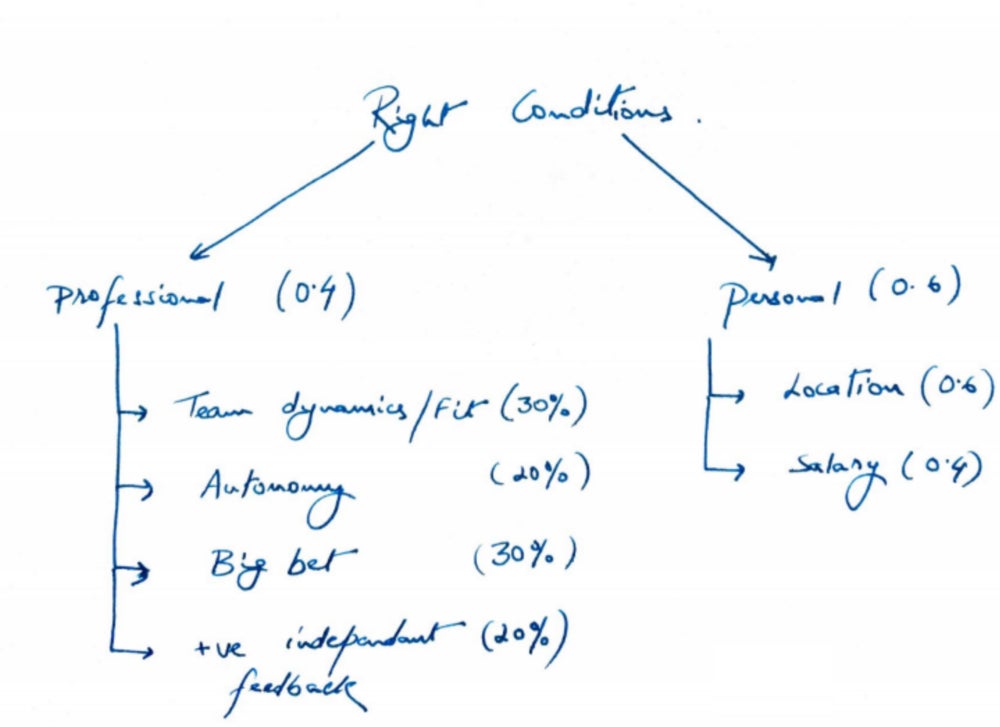 Right Conditions.
Professional (0.4)
Personal (0.6)
Team dynamics/Fit (30%)
Location (0.6)
Autonomy (20%)
Salary (0.4)
Big bet (30%)
+ve independant (20%)
feedback